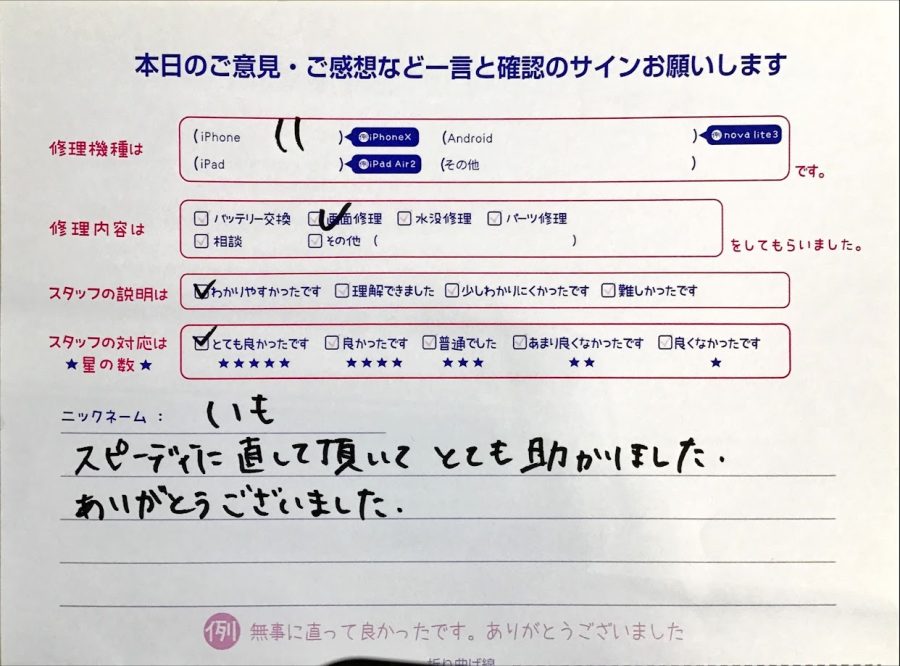 本日のご意見・ご感想など一言と確認のサインお願いします
修理機種は (iPhone 11 ) 例iPhoneX (Android ) 例nova lite3
(iPad ) 例iPad Air2 (その他 ) です。
修理内容は バッテリー交換 画面修理 水没修理 パーツ修理
相談 その他 ( ) をしてもらいました。
スタッフの説明は わかりやすかったです 理解できました 少しわかりにくかったです 難しかったです
スタッフの対応は とても良かったです 良かったです 普通でした あまり良くなかったです 良くなかったです
★星の数★ ★★★★★ ★★★★ ★★★ ★★ ★
ニックネーム : いも
スピーディに直して頂いてとても助かりました.
ありがとうございました.
例 無事に直って良かったです。ありがとうございました
折り曲げ線